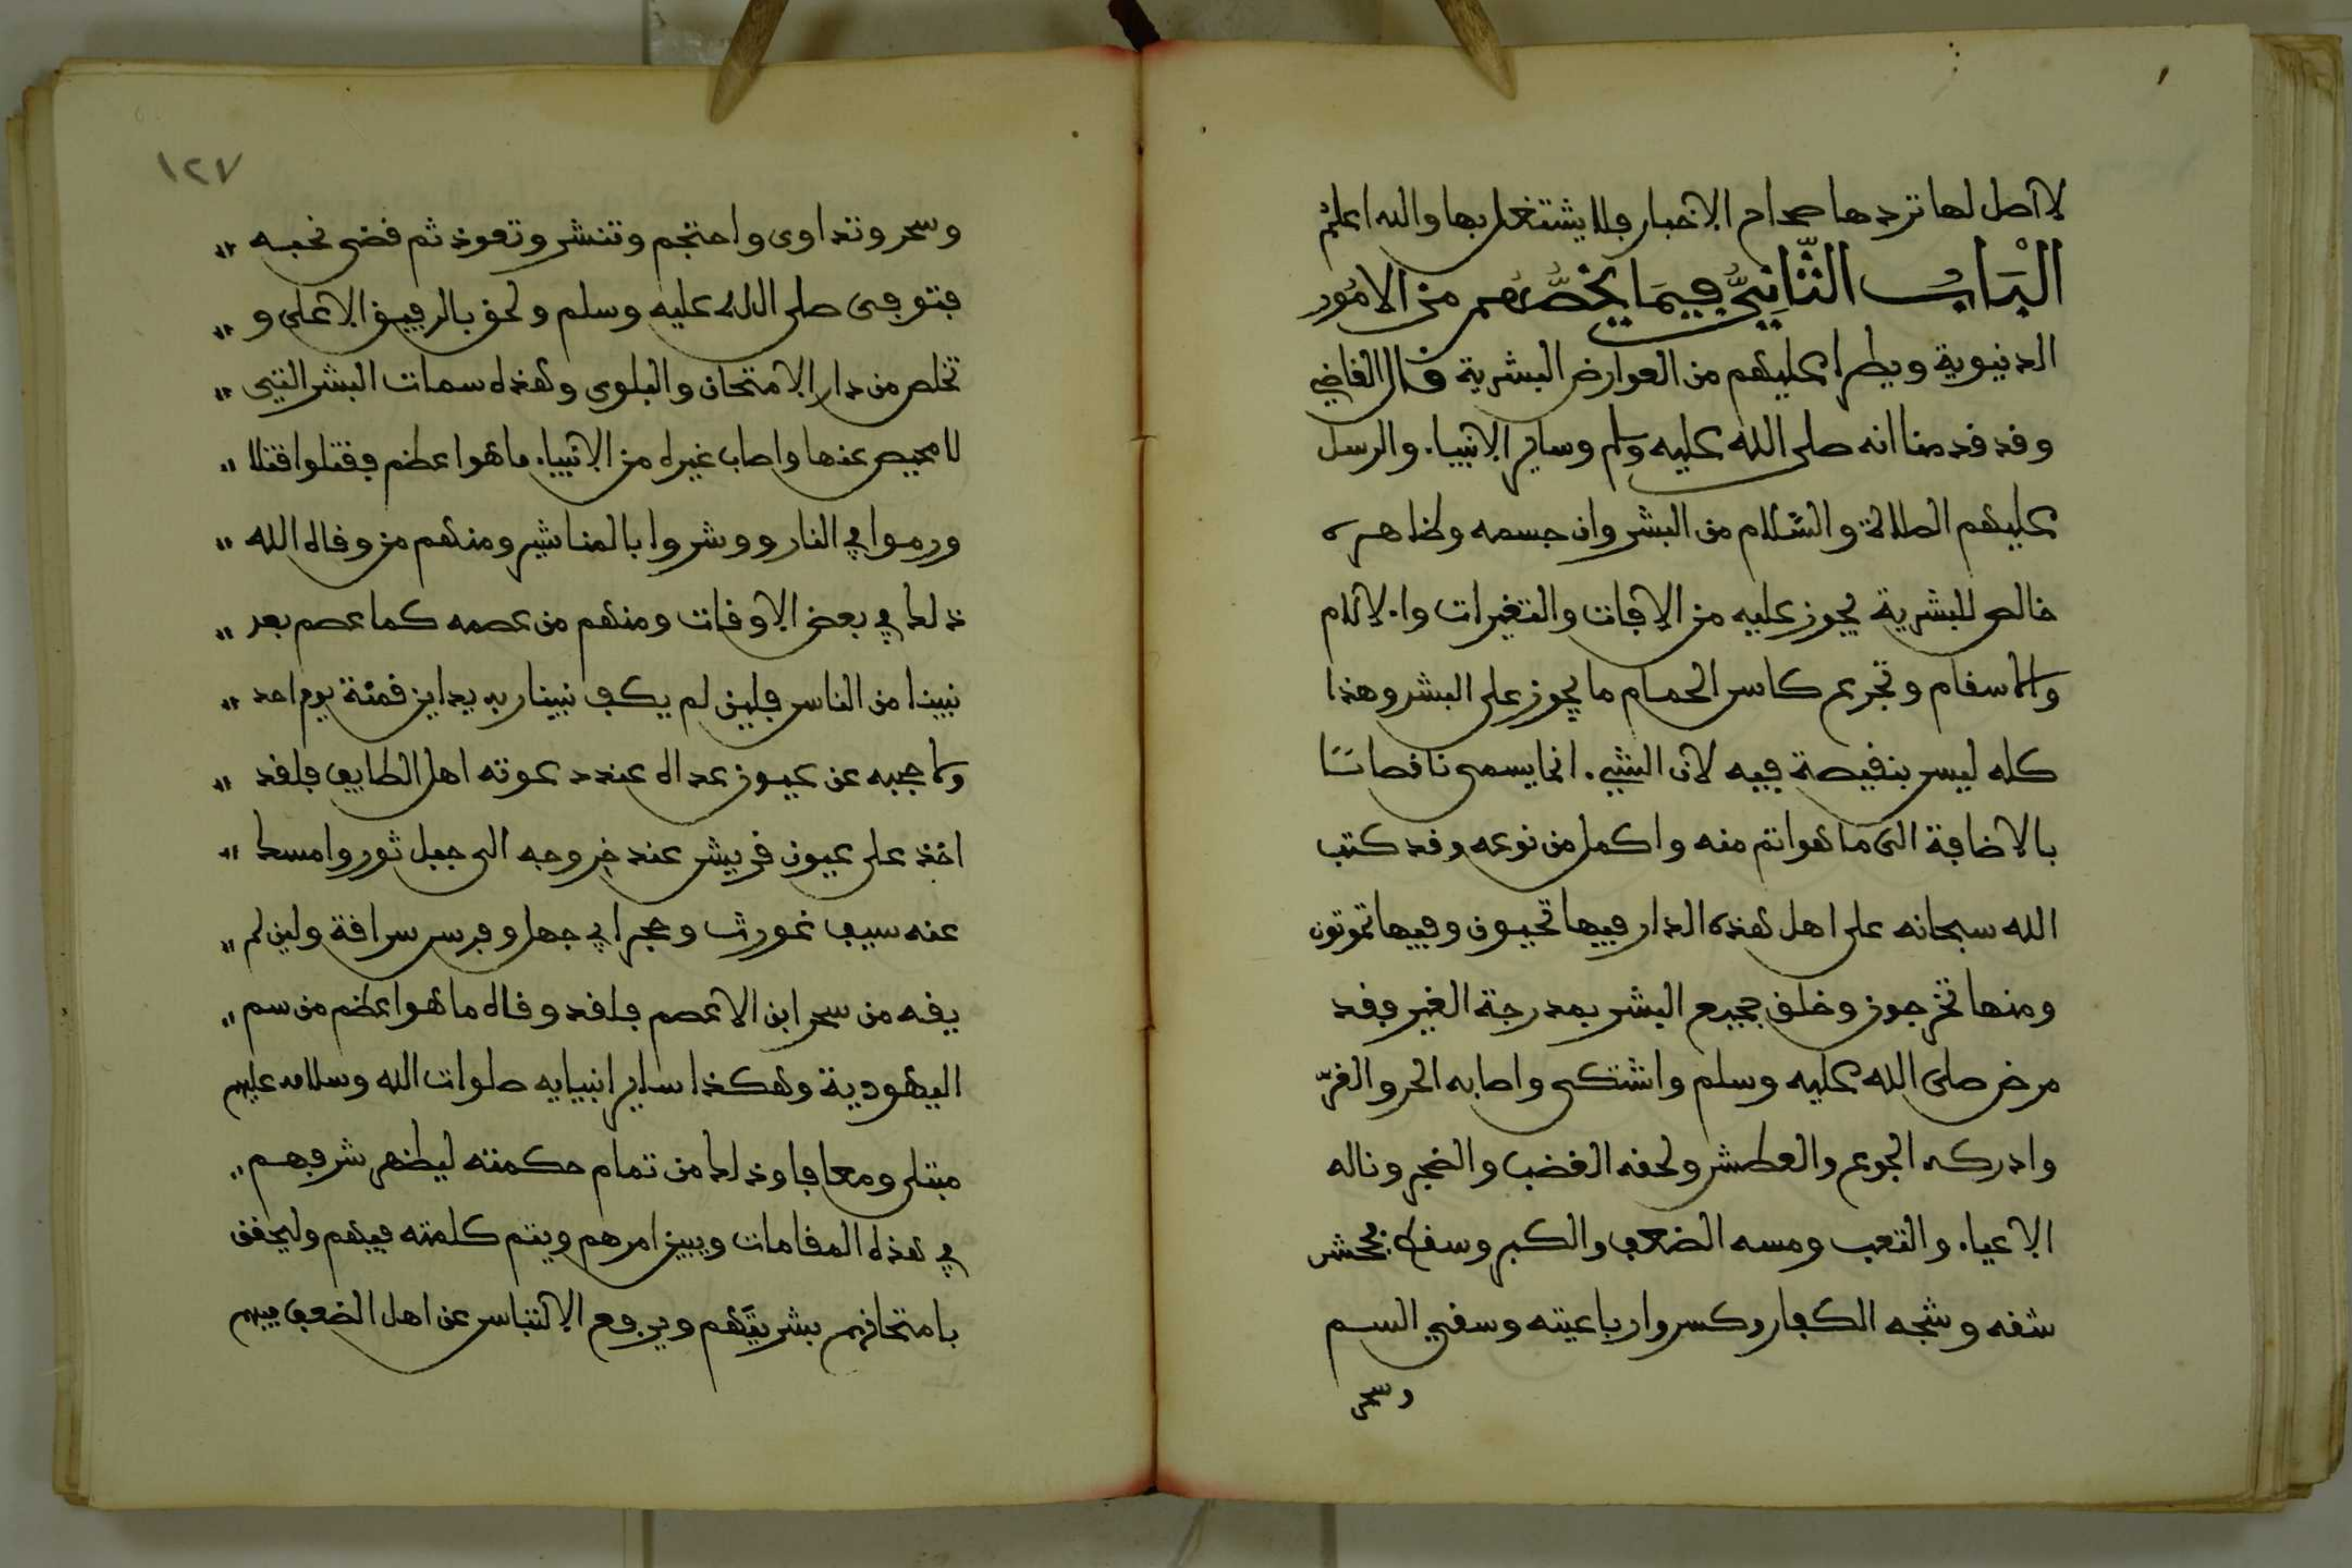 لا اصل لها تردها صحاح الاخبار فلا يشتغل بها والله اعلم
الْبَاب الثَّانِي فِيمَا يَخُصُّهُم من الامُور
الدنيوية ويطرا عليهم من العوارض البشرية قال القاضي
وقد قدمنا انه صلى الله عليه وسلم وساير الانبياء والرسل
عليهم الصلاة والسَّلام من البشر وان جسمه وظاهره
خالص للبشرية يجوز عليه من الافات والتغيرات والالام
والاسقام وتجرع كاس الحمام ما يجوز على البشر وهذا
كله ليس بنقيصة فيه لان الشيء انما يسمى ناقصا
بالاضافة الى ما هو اتم منه واكمل من نوعه وقد كتب
الله سبحانه على اهل هذه الدار فيها تحيون وفيها تموتون
ومنها تخرجون وخلق جميع البشر بمدرجة الغير فقد
مرض صلى الله عليه وسلم واشتكى واصابه الحر والقرّ
وادركه الجوع والعطش ولحقه الغضب والضجر وناله
الاعياء والتعب ومسه الضعف والكبر وسقط فجحش
شقه وشجه الكفار وكسروا رباعيته وسقي السم
وسحر
١٢٧
وسحر وتداوى واحتجم وتنشر وتعوذ ثم قضى نحبه
فتوفى صلى الله عليه وسلم ولحق بالرفيق الاعلى و
تخلص من دار الامتحان والبلوى وهذه سمات البشر التي
لا محيص عنها واصاب غيره من الانبياء ما هو اعظم فقتلوا قتلا
ورموا في النار ووشروا بالمناشير ومنهم من وقاه الله
ذلك في بعض الاوقات ومنهم من عصمه كما عصم بعد
نبينا من الناس فلين لم يكف نبينا ربه يد ابن قمئة يوم احد
ولا حجبه عن عيون عداه عند دعوته اهل الطايف فلقد
اخذ على عيون قريش عند خروجه الى جبل ثور وامسك
عنه سيف غورث وحجر ابي جهل وفرس سراقة ولين لم
يقه من سحر ابن الاعصم فلقد وقاه ما هو اعظم من سم
اليهودية وهكذا ساير انبيايه صلوات الله وسلامه عليهم
مبتلى ومعافا وذلك من تمام حكمته ليظهر شرفهم
في هذه المقامات ويبين امرهم ويتم كلمته فيهم وليحقق
بامتحانهم بشريتهم ويرفع الالتباس عن اهل الضعف فيهم